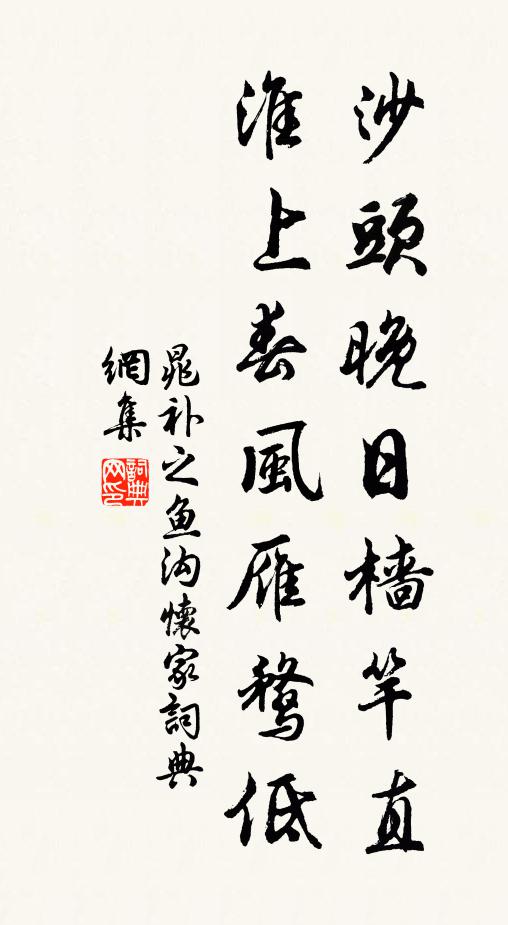 沙頭晚日檣竿直
淮上春風雁鶩低
晁补之鱼沟懷家詞典
網集
詞典網印